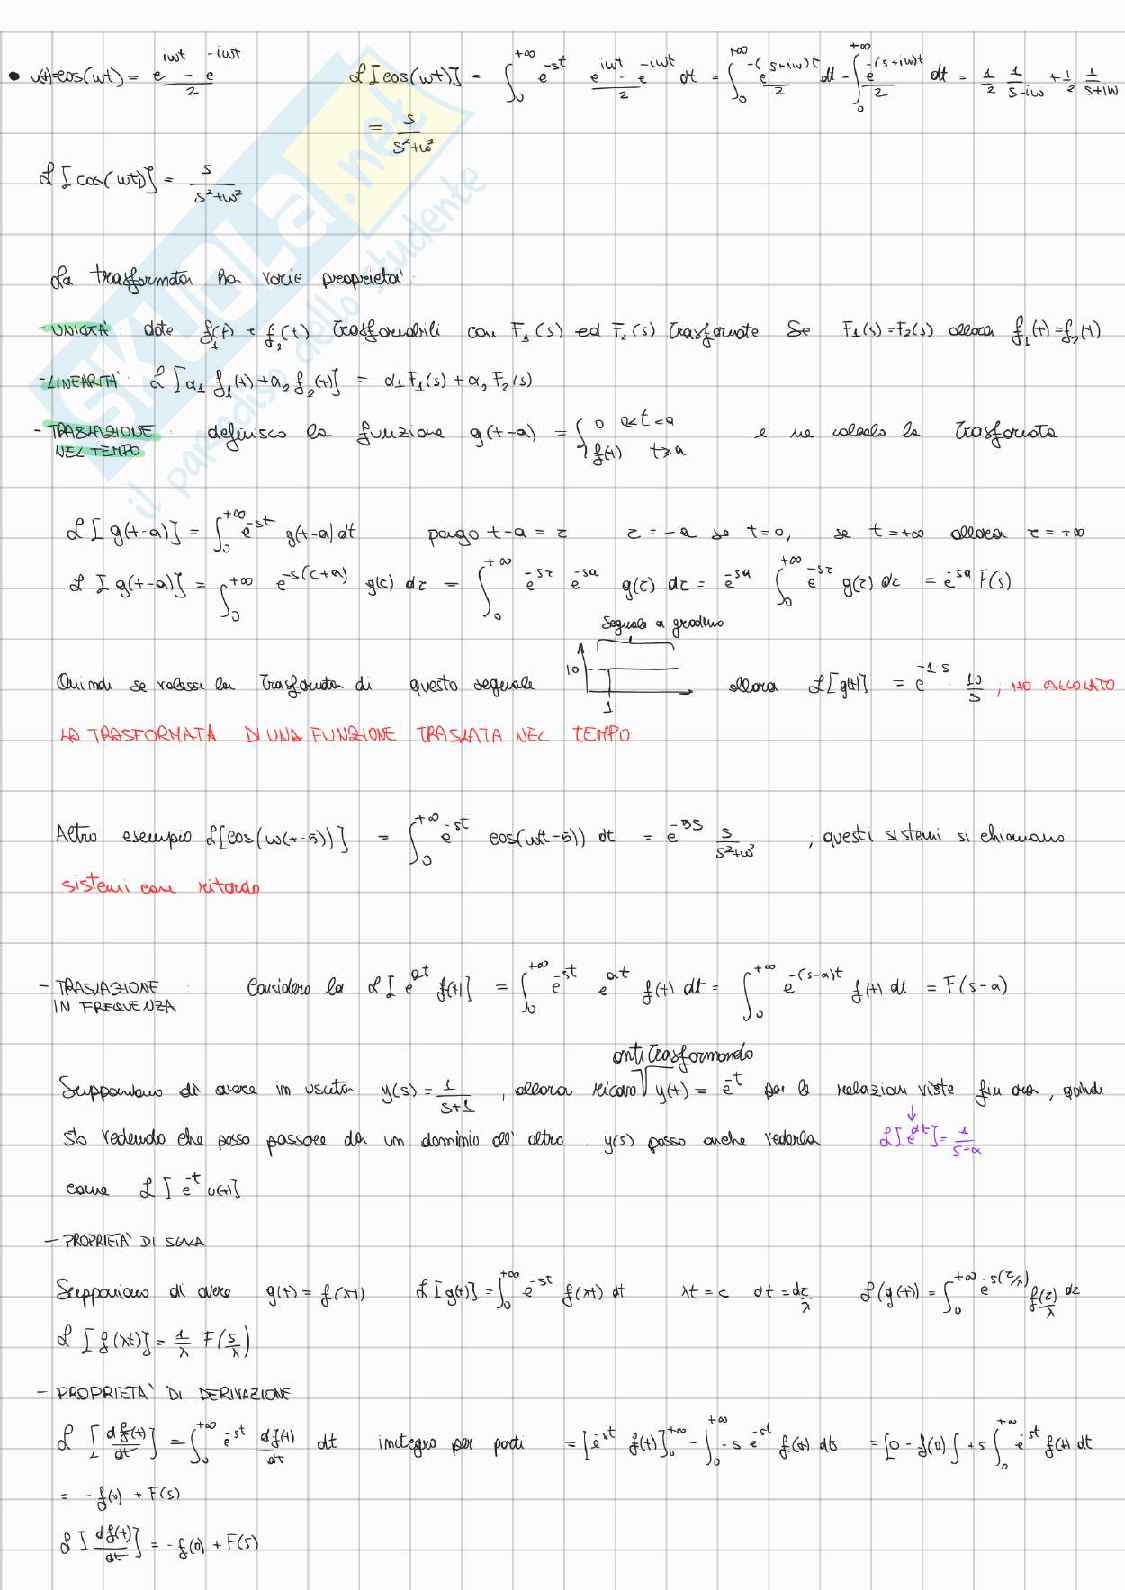 • u(t)=cos(ωt) = (e^{iωt} - e^{-iωt})/2    ℒ[cos(ωt)] = ∫_0^{+∞} e^{-st} (e^{iωt} - e^{-iωt})/2 dt = ∫_0^{+∞} e^{-(s-iω)t}/2 dt - ∫_0^{+∞} e^{-(s+iω)t}/2 dt = 1/2 1/(s-iω) + 1/2 1/(s+iω)
= s/(s²+ω²)
ℒ[cos(ωt)] = s/(s²+ω²)
La trasformata ha varie proprietà:
- UNICITÀ date f₁(t) e f₂(t) trasformabili con F₁(s) ed F₂(s) trasformate Se F₁(s)=F₂(s) allora f₁(t)=f₂(t)
- LINEARITÀ: ℒ[α₁ f₁(t)+α₂ f₂(t)] = α₁ F₁(s) + α₂ F₂(s)
- TRASLAZIONE NEL TEMPO: definisco la funzione g(t-a) = { 0 0<t<a ; f(t) t≥a e ne calcolo la trasformata
ℒ[g(t-a)] = ∫_0^{+∞} e^{-st} g(t-a) dt pongo t-a = τ τ = -a se t=0, se t=+∞ allora τ=+∞
ℒ[g(t-a)] = ∫_0^{+∞} e^{-s(τ+a)} g(τ) dτ = ∫_0^{+∞} e^{-sτ} e^{-sa} g(τ) dτ = e^{-sa} ∫_0^{+∞} e^{-sτ} g(τ) dτ = e^{-sa} F(s)
Segnale a gradino
Quindi se volessi la trasformata di questo segnale 10 1 allora ℒ[g(t)] = e^{-1·s} · 10/s ; HO CALCOLATO
LA TRASFORMATA DI UNA FUNZIONE TRASLATA NEL TEMPO
Altro esempio ℒ[cos(ω(t-3))] = ∫_0^{+∞} e^{-st} cos(ω(t-3)) dt = e^{-3s} s/(s²+ω²) ; questi sistemi si chiamano
sistemi con ritardo
- TRASLAZIONE IN FREQUENZA: Considero la ℒ[e^{at} f(t)] = ∫_0^{+∞} e^{-st} e^{at} f(t) dt = ∫_0^{+∞} e^{-(s-a)t} f(t) dt = F(s-a)
antitrasformando
Supponiamo di avere in uscita y(s) = 1/(s+1), allora ricavo y(t) = e^{-t} per le relazioni viste fin ora, quindi
sto vedendo che posso passare da un dominio all'altro y(s) posso anche vederla ℒ[e^{αt}] = 1/(s-α)
come ℒ[e^{-t} u(t)]
- PROPRIETÀ DI SCALA
Supponiamo di avere g(t) = f(λt) ℒ[g(t)] = ∫_0^{+∞} e^{-st} f(λt) dt λt = τ dt = dτ/λ ℒ(g(t)) = ∫_0^{+∞} e^{-s(τ/λ)} f(τ)/λ dτ
ℒ[f(λt)] = 1/λ F(s/λ)
- PROPRIETÀ DI DERIVAZIONE
ℒ[df(t)/dt] = ∫_0^{+∞} e^{-st} df(t)/dt dt integro per parti = [e^{-st} f(t)]_0^{+∞} - ∫_0^{+∞} -s e^{-st} f(t) dt = [0 - f(0)] + s ∫_0^{+∞} e^{-st} f(t) dt
= - f(0) + F(s)
ℒ[df(t)/dt] = - f(0) + F(s)
SKUOLA.net
il paradiso dello studente